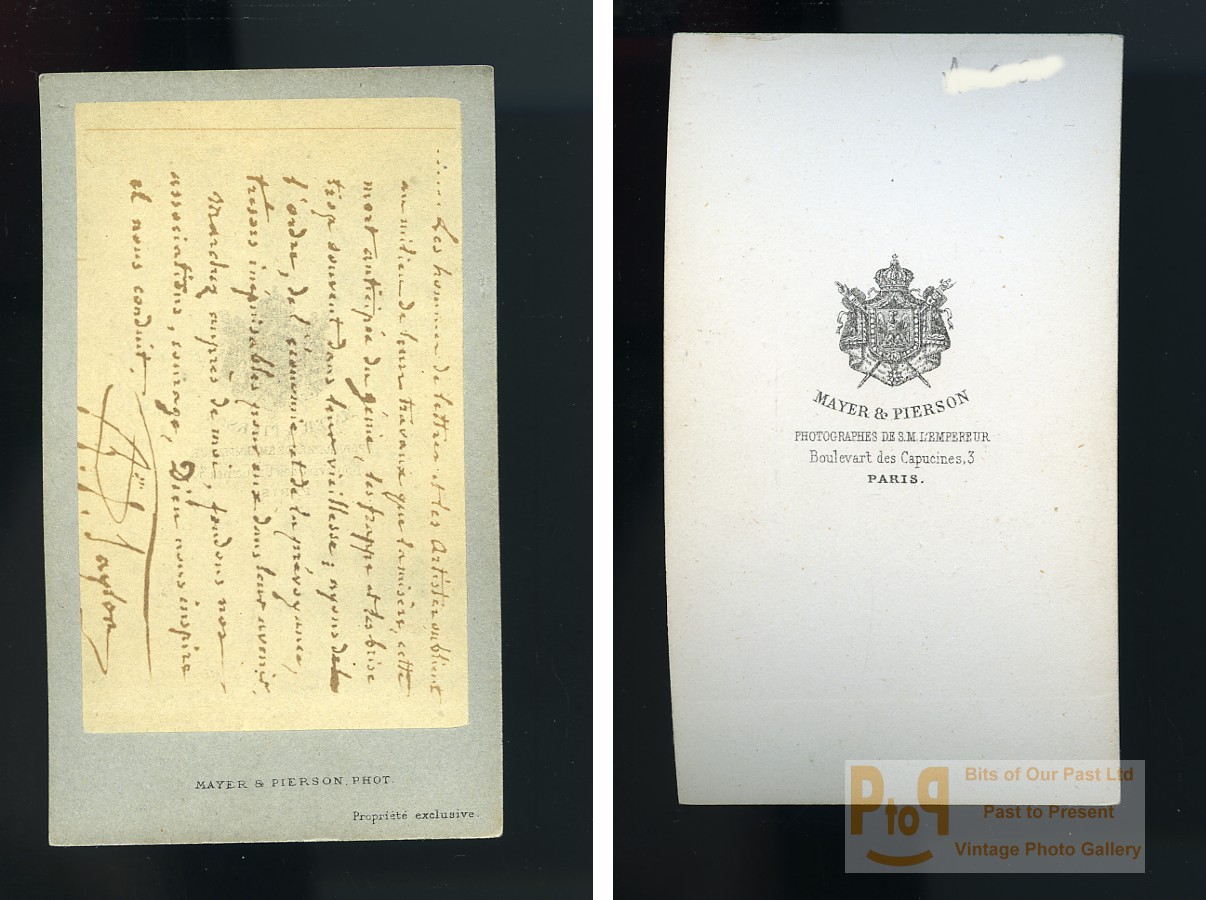 ..... Les hommes de lettres et les Artistes oublient
au milieu de leurs travaux que la misère, cette
mort anticipée du génie, les frappe et les brise
trop souvent dans leur vieillesse; ayons de
l'ordre, de l'économie et de la prévoyance,
trésors inépuisables pour eux dans leur avenir.
Marchez auprès de moi, fondons nos
associations, courage, Dieu nous inspire
et nous conduit.
Taylor
MAYER & PIERSON, PHOT.
Propriété exclusive.
MAYER & PIERSON
PHOTOGRAPHES DE S.M. L'EMPEREUR
Boulevart des Capucines, 3
PARIS.
PtoP
Bits of Our Past Ltd
Past to Present
Vintage Photo Gallery